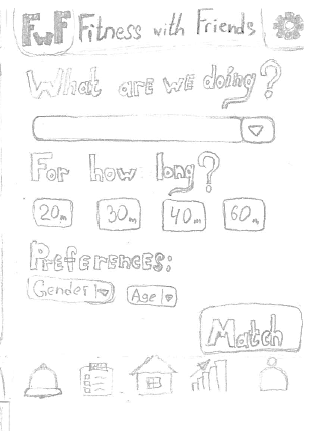 FwF Fitness with Friends
What are we doing?
For how long?
20m 30m 40m 60m
Preferences:
Gender Age
Match